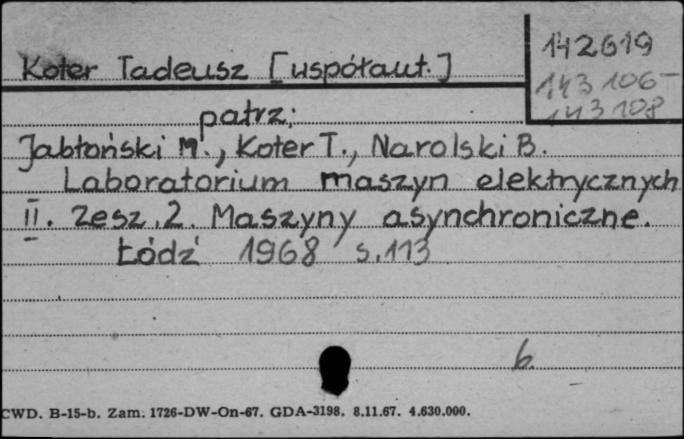 Koter Tadeusz [współaut.]
142619
143 106-
143 108
patrz:
Jabłoński M., Koter T., Narolski B.
Laboratorium maszyn elektrycznych
II. Zesz. 2. Maszyny asynchroniczne.
Łódź 1968 s. 113
6.
CWD. B-15-b. Zam. 1726-DW-On-67. GDA-3198. 8.11.67. 4.630.000.